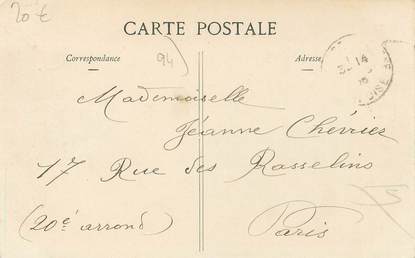 20€
CARTE POSTALE
Correspondance
94
Adresse
14
OISE
Mademoiselle
Jéanne Chévrier
17 Rue des Rasselins
(20e arrond)
Paris